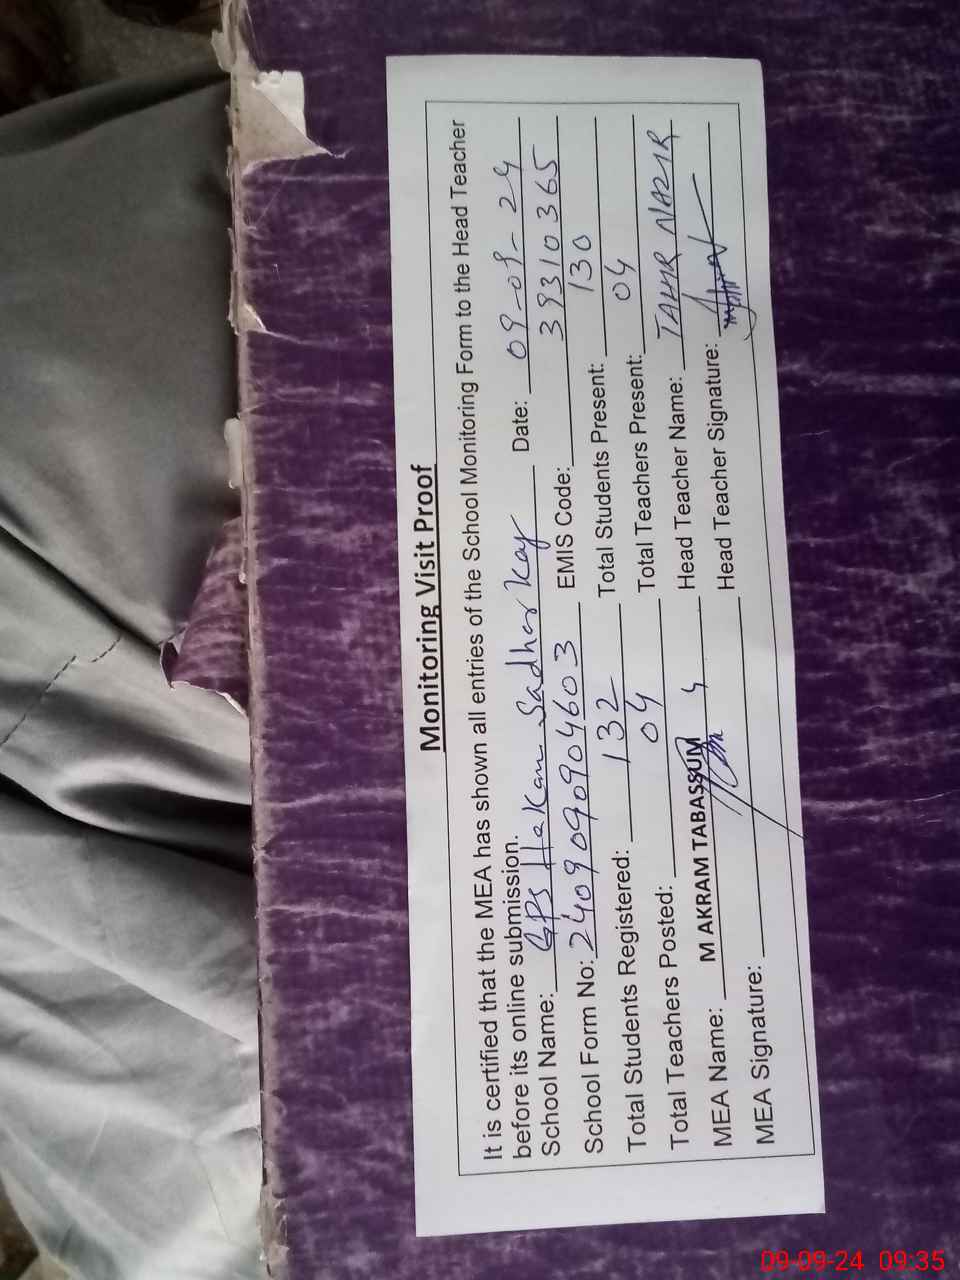 Monitoring Visit Proof
It is certified that the MEA has shown all entries of the School Monitoring Form to the Head Teacher
before its online submission.
School Name: GPS Hakam Sadher Kay Date: 09-09-24
School Form No: 2409090904603 EMIS Code: 39310365
Total Students Registered: 132 Total Students Present: 130
Total Teachers Posted: 04 Total Teachers Present: 04
MEA Name: M AKRAM TABASSUM Head Teacher Name: TAHIR NAZIR
MEA Signature: Head Teacher Signature:
09-09-24 09:35